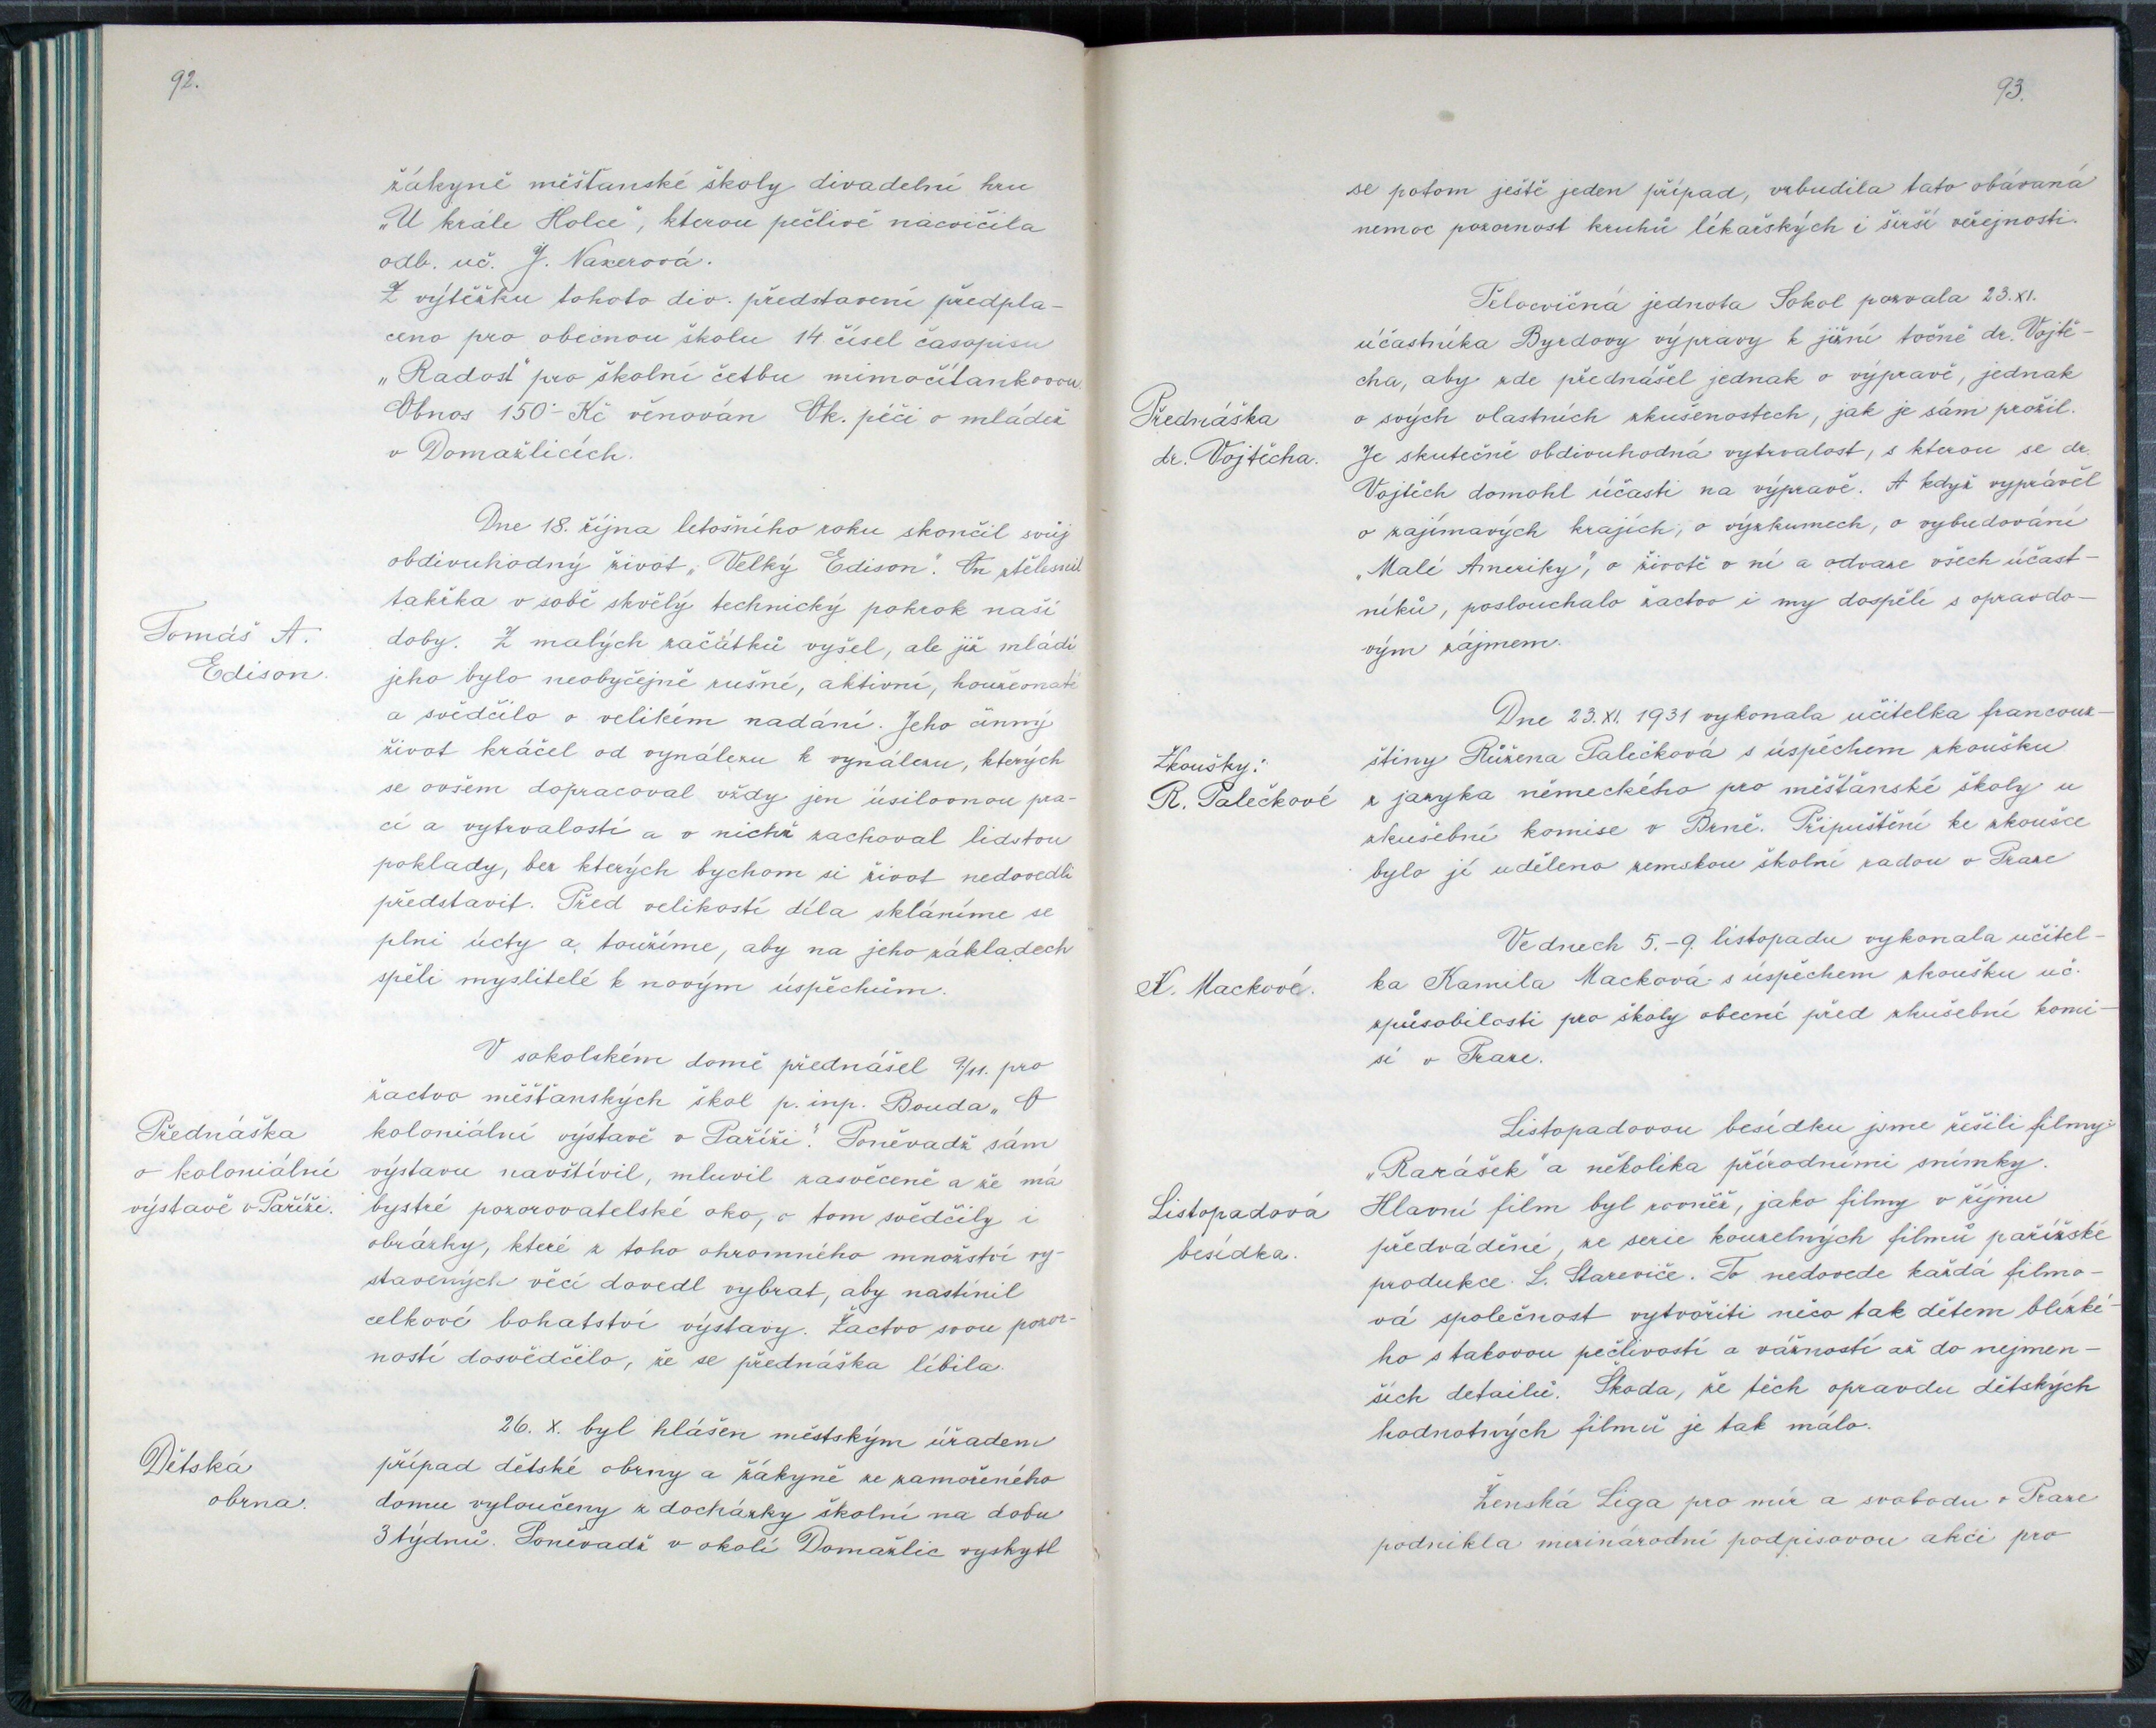 92.
žákyně měšťanské školy divadelní hru
„U krále Holce", kterou pečlivě nacvičila
odb. uč. J. Naxerová.
Z výtěžku tohoto div. představení předpla-
ceno pro obecnou školu 14 čísel časopisu
„Radost" pro školní četbu mimočítankovou.
Obnos 150·- Kč věnován Ok. péči o mládež
v Domažlicích.
Dne 18. října letošního roku skončil svůj
obdivuhodný život „Velký Edison". On ztělesnil
takřka v sobě skvělý technický pokrok naší
Tomáš A.
Edison.
doby. Z malých začátků vyšel, ale již mládí
jeho bylo neobyčejně rušné, aktivní, houževnaté
a svědčilo o velikém nadání. Jeho činný
život kráčel od vynálezu k vynálezu, kterých
se ovšem dopracoval vždy jen úsilovnou pra-
cí a vytrvalostí a v nichž zachoval lidstvu
poklady, bez kterých bychom si život nedovedli
představit. Před velikostí díla skláníme se
plni úcty a toužíme, aby na jeho základech
spěli myslitelé k novým úspěchům.
V sokolském domě přednášel 9/11. pro
žactvo měšťanských škol p. insp. Bouda „O
Přednáška
o koloniální
výstavě v Paříži.
koloniální výstavě v Paříži". Poněvadž sám
výstavu navštívil, mluvil zasvěceně a že má
bystré pozorovatelské oko, o tom svědčily i
obrázky, které z toho ohromného množství vy-
stavených věcí dovedl vybrat, aby nastínil
celkové bohatství výstavy. Žactvo svou pozor-
ností dosvědčilo, že se přednáška líbila.
26. X. byl hlášen městským úřadem
Dětská
obrna.
případ dětské obrny a žákyně ze zamořeného
domu vyloučeny z docházky školní na dobu
3 týdnů. Poněvadž v okolí Domažlic vyskytl
93.
se potom ještě jeden případ, vzbudila tato obávaná
nemoc pozornost kruhů lékařských i širší veřejnosti.
Tělocvičná jednota Sokol pozvala 23. XI.
účastníka Byrdovy výpravy k jižní točně dr. Vojtě-
cha, aby zde přednášel jednak o výpravě, jednak
Přednáška
dr. Vojtěcha.
o svých vlastních zkušenostech, jak je sám prožil.
Je skutečně obdivuhodná vytrvalost, s kterou se dr.
Vojtěch domohl účasti na výpravě. A když vyprávěl
o zajímavých krajích, o výzkumech, o vybudování
„Malé Ameriky", o životě v ní a odvaze všech účast-
níků, poslouchalo žactvo i my dospělí s opravdo-
vým zájmem.
Dne 23. XI. 1931 vykonala učitelka francouz-
Zkoušky:
R. Palečkové
štiny Růžena Palečková s úspěchem zkoušku
z jazyka německého pro měšťanské školy u
zkušební komise v Brně. Připuštění ke zkoušce
bylo jí uděleno zemskou školní radou v Praze
Ve dnech 5.-9. listopadu vykonala učitel-
K. Mackové.
ka Kamila Macková s úspěchem zkoušku uč.
způsobilosti pro školy obecné před zkušební komi-
sí v Praze.
Listopadovou besídku jsme řešili filmy:
„Rarášek" a několika přírodními snímky.
Listopadová
besídka.
Hlavní film byl rovněž, jako filmy v říjnu
předváděné, ze serie kouzelných filmů pařížské
produkce L. Stareviče. To nedovede každá filmo-
vá společnost vytvořiti něco tak dětem blízké-
ho s takovou pečlivostí a vážností až do nejmen-
ších detailů. Škoda, že těch opravdu dětských
hodnotných filmů je tak málo.
Ženská Liga pro mír a svobodu v Praze
podnikla mezinárodní podpisovou akci pro